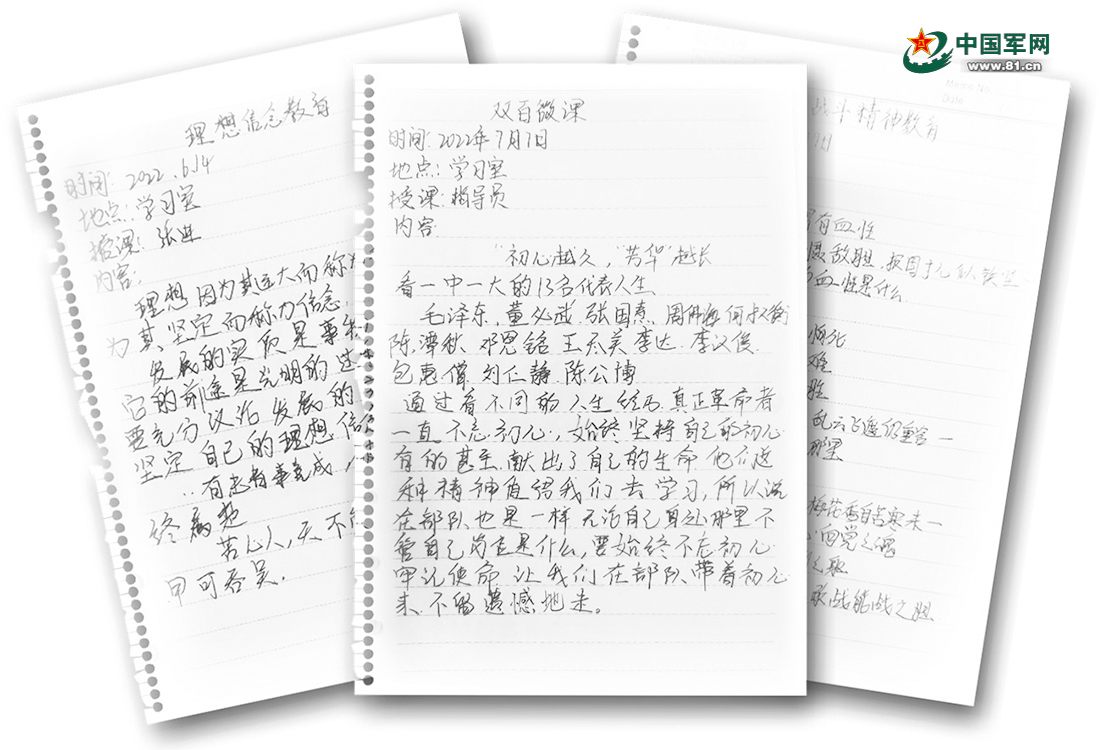 中国军网
www.81.cn
理想信念教育
时间: 2022.6.14
地点: 学习室
授课: 张
内容:
理想因为其远大而称为
为其坚定而称为信念.
发展的实质是事
它的前途是光明的
要充分认活发展的
坚定自己的理想信
有志者事竟成
终属楚
苦心人,天不
甲可吞吴.
双百微课
时间: 2022年7月1日
地点: 学习室
授课: 指导员
内容:
“初心越久,“芳华”越长
看一中一大的13名代表人生
毛泽东、董必武、张国焘、周佛海 何叔衡
陈潭秋、邓恩铭 王尽美 李达 李汉俊
包惠僧 刘仁静 陈公博
通过看不同的人生经历 真正革命者
一直不忘初心,始终坚持自己的初心
有的甚至献出了自己的生命 他们这
种精神值得我们去学习,所以说
在部队也是一样 无论自己身处那里 不
管自己岗位是什么,要始终不忘初心
牢记使命 让我们在部队带着初心
来、不留遗憾地走。
Date
战斗精神教育
有血性
血性是什么
难
胜
乱云飞渡仍
那里
梅花香自苦寒来一
之歌
敢战能战之胆